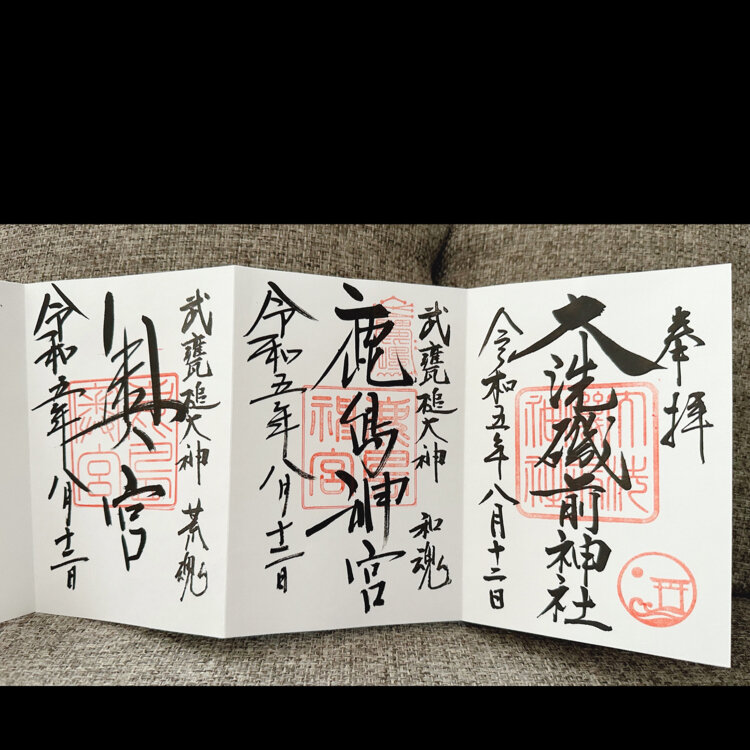 奉拝
大洗磯前神社
令和五年八月十二日
武甕槌大神 和魂
鹿島神宮
令和五年八月十二日
武甕槌大神 荒魂
奥宮
令和五年八月十二日